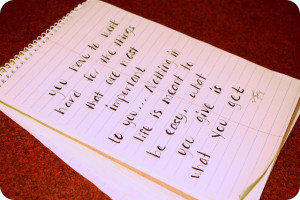 you have to work
hard for the things
that are most
important
to you... Nothing in
life is meant to
be easy, what
you give is
what you get